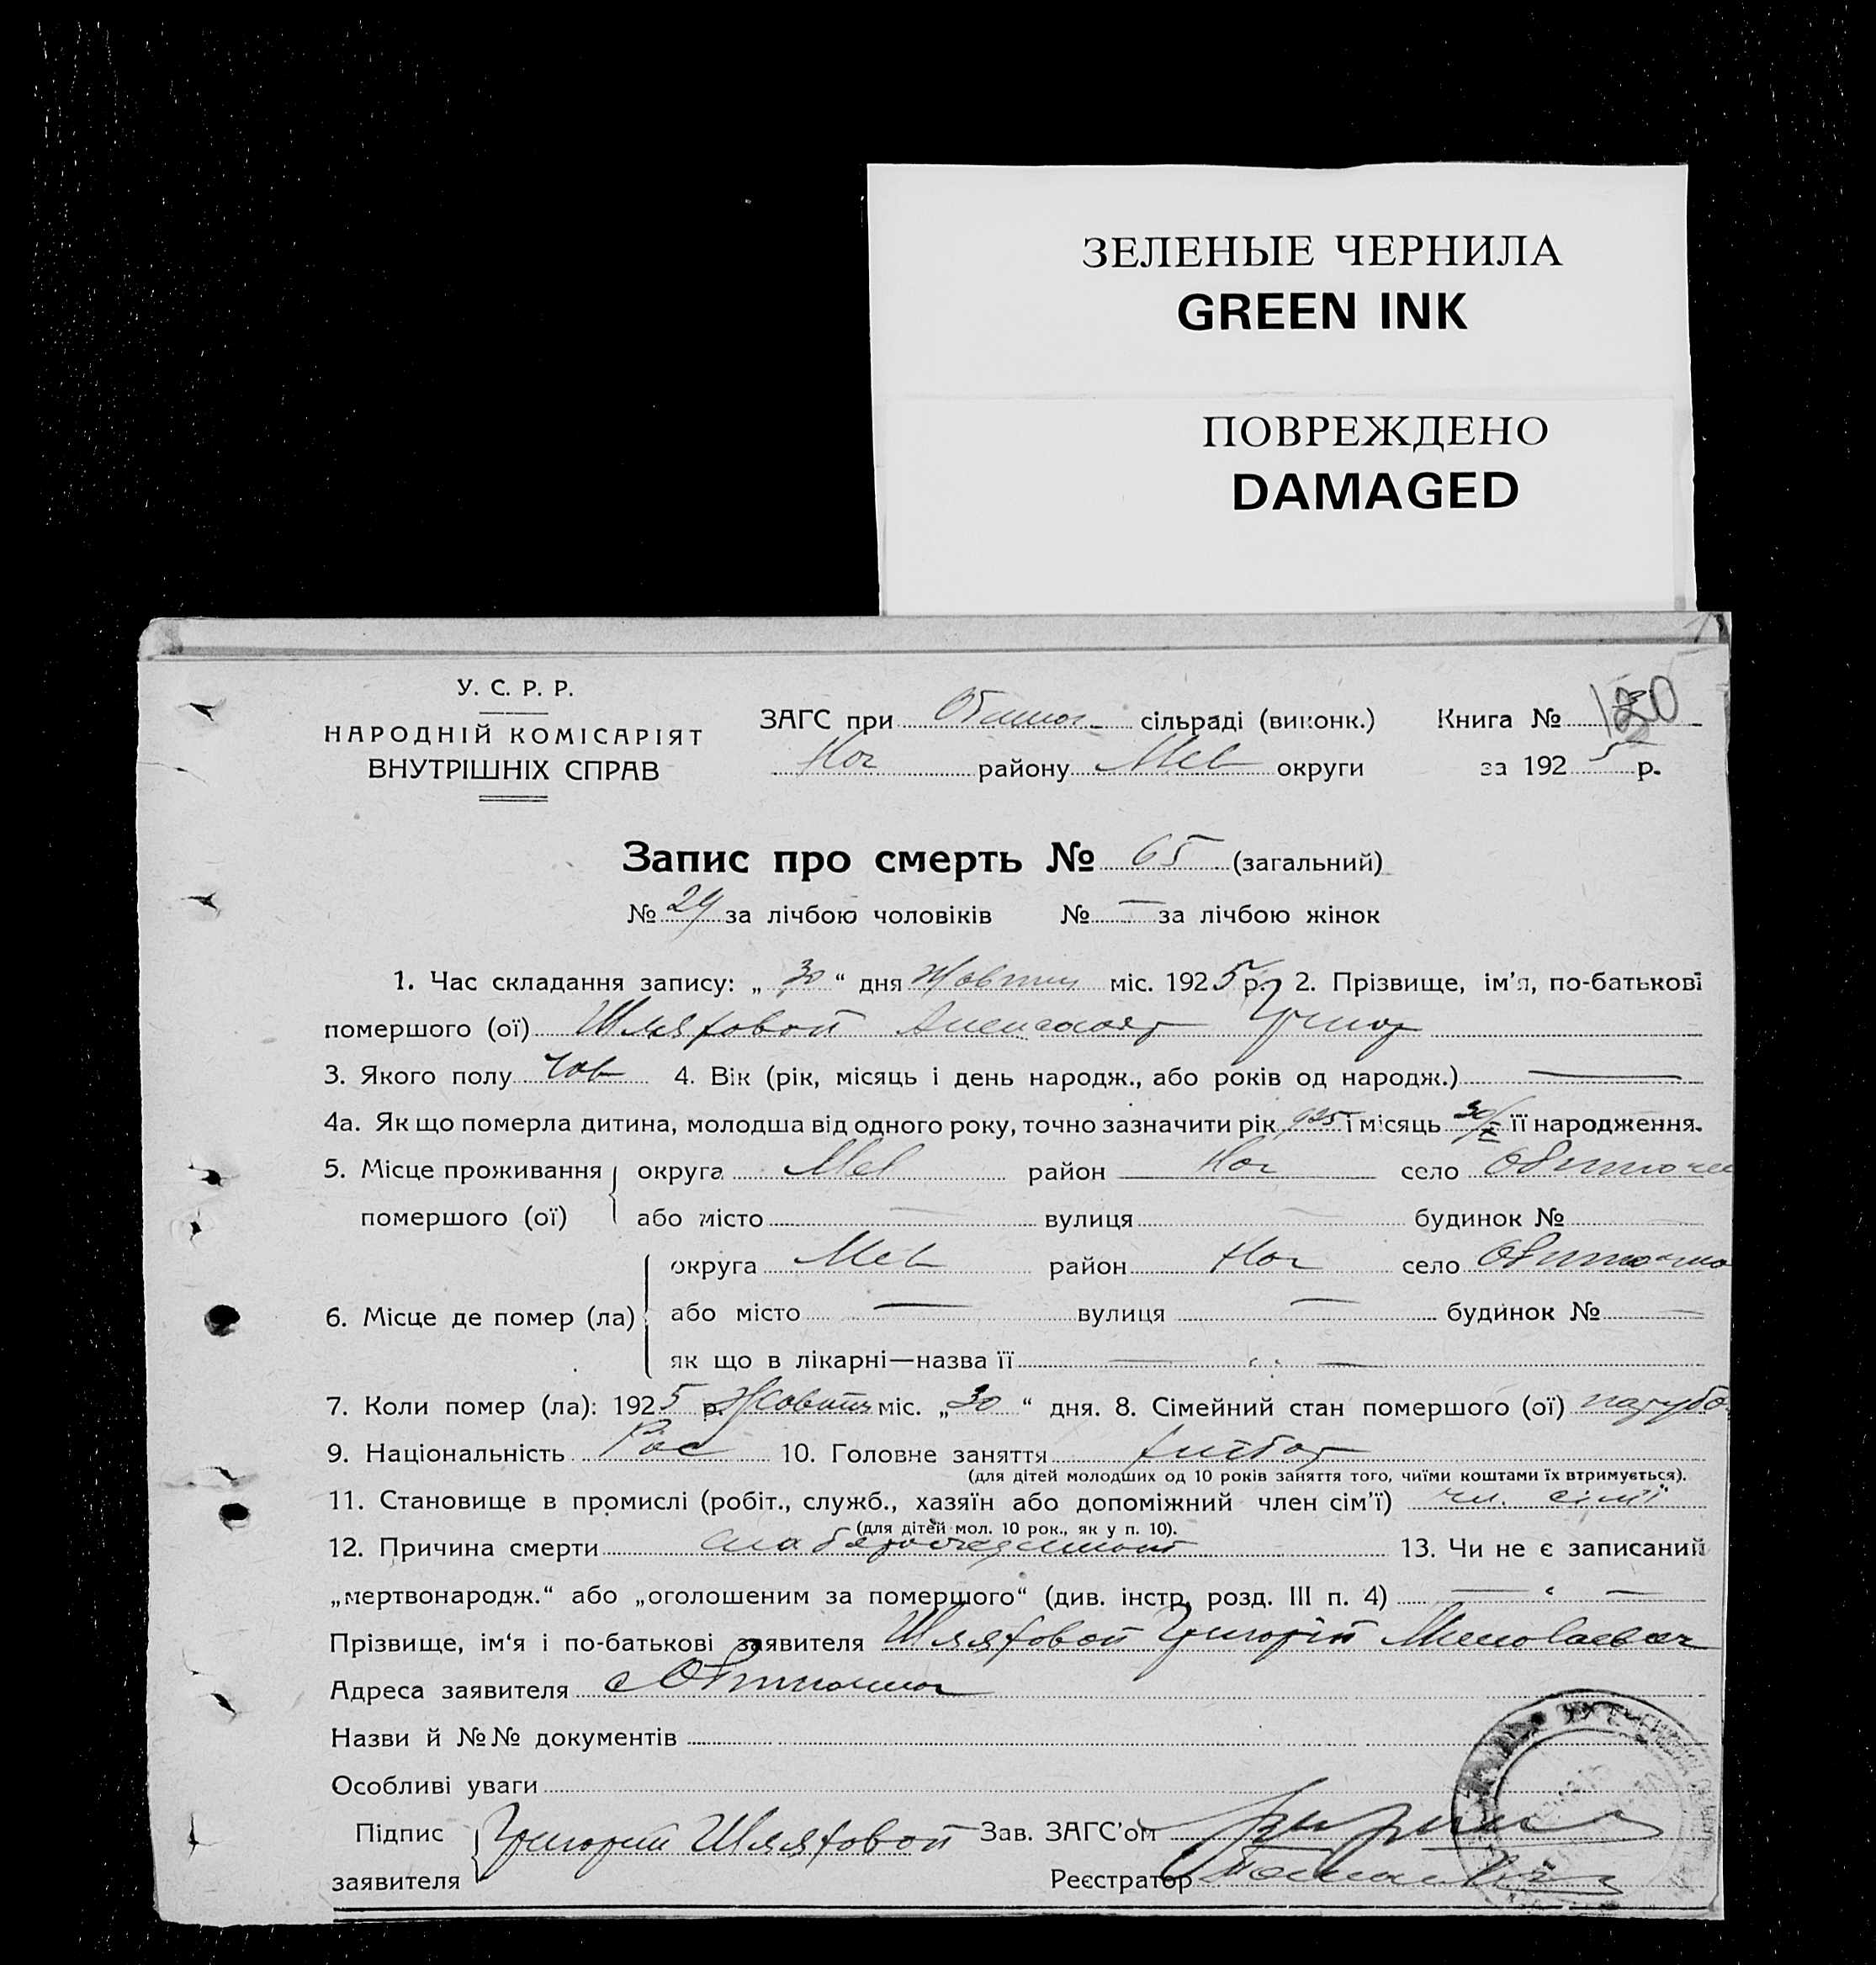 ЗЕЛЕНЫЕ ЧЕРНИЛА
GREEN INK
ПОВРЕЖДЕНО
DAMAGED
У. С. Р. Р.
НАРОДНІЙ КОМІСАРІЯТ
ВНУТРІШНІХ СПРАВ
ЗАГС при сільраді (виконк.) Книга №
Ног району Мел округи за 1925 р.
Запис про смерть № 65 (загальний)
№ 24 за лічбою чоловіків № — за лічбою жінок
1. Час складання запису: „ 30 “ дня Жовтня міс. 1925 р. 2. Прізвище, ім'я, по-батькові
помершого (ої) Шляховой Александр Григор
3. Якого полу чов 4. Вік (рік, місяць і день народж., або років од народж.) —
4а. Як що померла дитина, молодша від одного року, точно зазначити рік 925 і місяць 30/X її народження.
5. Місце проживання округа Мел район Ног село
помершого (ої) або місто — вулиця — будинок № —
округа Мел район Ног село
6. Місце де помер (ла) або місто — вулиця — будинок № —
як що в лікарні—назва її — —
7. Коли помер (ла): 1925 р. Жовтня міс. „ 30 “ дня. 8. Сімейний стан помершого (ої) парубо
9. Національність Рос 10. Головне заняття хлібор
(для дітей молодших од 10 років заняття того, чиїми коштами їх втримується).
11. Становище в промислі (робіт., служб., хазяїн або допоміжний член сім'ї) чл. сімї
(для дітей мол. 10 рок., як у п. 10).
12. Причина смерти 13. Чи не є записаний
„мертвонародж.“ або „оголошеним за помершого“ (див. інстр. розд. III п. 4) — —
Прізвище, ім‘я і по-батькові заявителя Шляховой Григорій
Адреса заявителя с
Назви й №№ документів
Особливі уваги
Підпис Григорий Шляховой Зав. ЗАГС'ом
заявителя Реєстратор